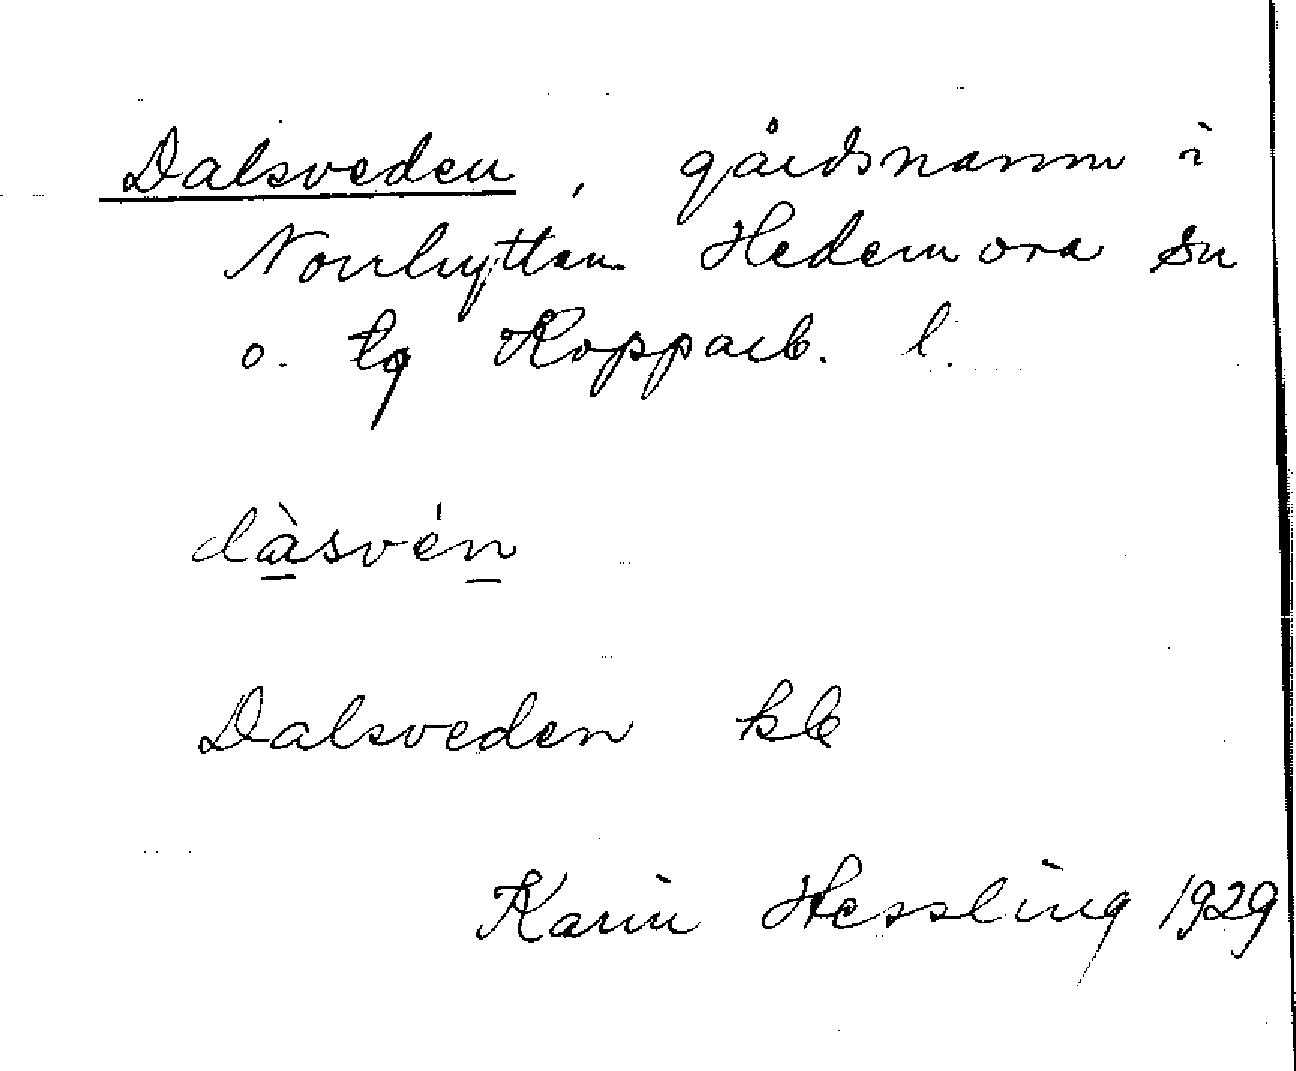 Dalsveden, gårdsnamn i
Norrhyttan Hedemora sn
o. tg Kopparb. l.
dàsvén
Dalsveden kb
Karin Hessling 1929